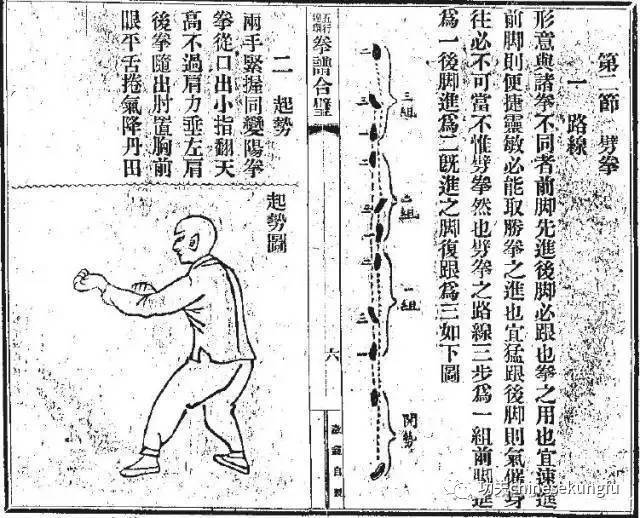 第二節 劈拳
一 路線
形意與諸拳不同者前脚先進後脚必跟也拳之用也宜速進
前脚則便捷靈敏必能取勝拳之進也宜猛跟後脚則氣催身
往必不可當不惟劈拳然也劈拳之路線三步為一組前脚進
為一後脚進為二既進之脚復跟為三如下圖
三組
二組
一組
開勢
五行
拳譜合璧
六
二 起勢
兩手緊握同變陽拳
拳從口出小指翻天
高不過肩力垂左肩
後拳隨出肘置胸前
眼平舌捲氣降丹田
起勢圖
功夫chinesekungfu